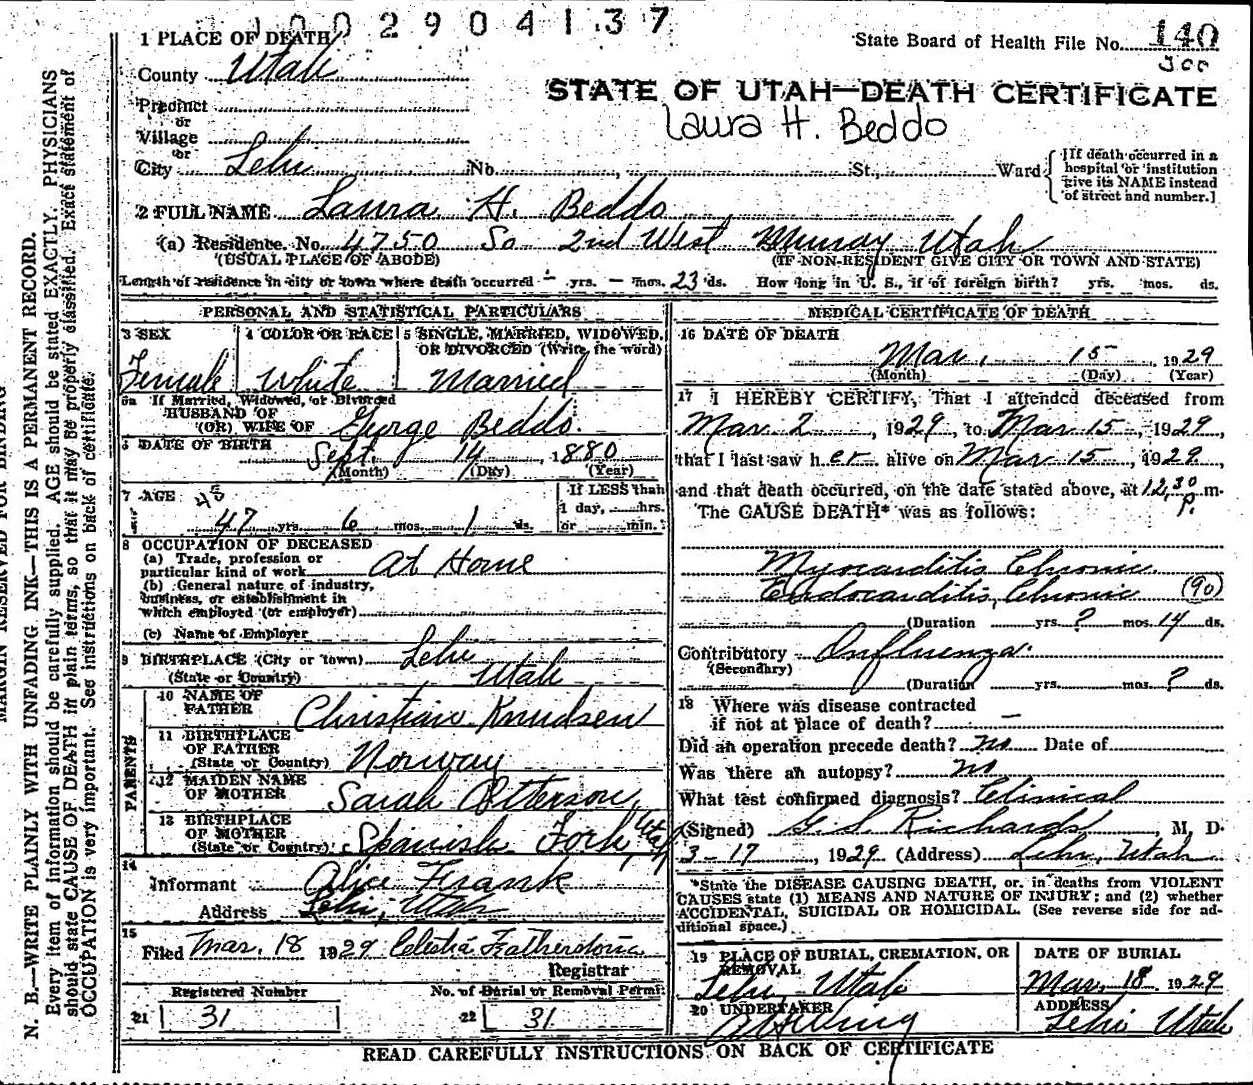 1 0 0 2 9 0 4 1 3 7
State Board of Health File No. 140
300
1 PLACE OF DEATH
County Utah
STATE OF UTAH—DEATH CERTIFICATE
Laura H. Beddo
Precinct
or
Village
or
City Lehi No. , St., Ward
[If death occurred in a hospital or institution give its NAME instead of street and number.]
2 FULL NAME Laura H. Beddo
(a) Residence. No. 4750 So 2nd West Murray Utah
(USUAL PLACE OF ABODE) (IF NON-RESIDENT GIVE CITY OR TOWN AND STATE)
Length of residence in city or town where death occurred - yrs. - mos. 23 ds. How long in U. S., if of foreign birth? yrs. mos. ds.
PERSONAL AND STATISTICAL PARTICULARS
3 SEX 4 COLOR OR RACE 5 SINGLE, MARRIED, WIDOWED, OR DIVORCED (Write the word)
Female White Married
6a If Married, Widowed, or Divorced
HUSBAND OF
(OR) WIFE OF George Beddo.
6 DATE OF BIRTH Sept. 14 1880
(Month) (Day) (Year)
7 AGE 48
If LESS than
1 day, hrs.
47 yrs. 6 mos. 1 ds. or min.
8 OCCUPATION OF DECEASED
(a) Trade, profession or
particular kind of work At Home
(b) General nature of industry,
business, or establishment in
which employed (or employer)
(c) Name of Employer
9 BIRTHPLACE (City or town) Lehi
(State or Country) Utah
PARENTS
10 NAME OF
FATHER Christian Knudsen
11 BIRTHPLACE
OF FATHER
(State or Country) Norway
12 MAIDEN NAME
OF MOTHER Sarah Otterson
13 BIRTHPLACE
OF MOTHER
(State or Country) Spanish Fork, Utah
14
Informant Alice Frank
Address Lehi, Utah
15
Filed Mar. 18 1929 Celestia Featherstone
Registrar
Registered Number No. of Burial or Removal Permit
21 31 22 31
MEDICAL CERTIFICATE OF DEATH
16 DATE OF DEATH
Mar. 15 1929
(Month) (Day) (Year)
17 I HEREBY CERTIFY, That I attended deceased from
Mar 2, 1929, to Mar 15, 1929,
that I last saw her alive on Mar 15, 1929,
and that death occurred, on the date stated above, at 12,30 P. m.
The CAUSE DEATH* was as follows:
Myocarditis Chronic
Endocarditis, Chronic (90)
(Duration yrs. ? mos. 14 ds.
Contributory Influenza.
(Secondary)
(Duration yrs. mos. ? ds.
18 Where was disease contracted
if not at place of death? —
Did an operation precede death? No Date of
Was there an autopsy? No
What test confirmed diagnosis? Clinical
(Signed) G. S. Richards, M. D.
3-17, 1929 (Address) Lehi, Utah
*State the DISEASE CAUSING DEATH, or in deaths from VIOLENT
CAUSES state (1) MEANS AND NATURE OF INJURY; and (2) whether
ACCIDENTAL, SUICIDAL OR HOMICIDAL. (See reverse side for additional space.)
19 PLACE OF BURIAL, CREMATION, OR REMOVAL DATE OF BURIAL
Lehi Utah Mar. 18 1929
20 UNDERTAKER ADDRESS
Lehi Utah
READ CAREFULLY INSTRUCTIONS ON BACK OF CERTIFICATE
MARGIN RESERVED FOR BINDING
N. B.—WRITE PLAINLY WITH UNFADING INK—THIS IS A PERMANENT RECORD.
Every item of information should be carefully supplied. AGE should be stated EXACTLY. PHYSICIANS
should state CAUSE OF DEATH in plain terms, so that it may be properly classified. Exact statement of
OCCUPATION is very important. See instructions on back of certificate.